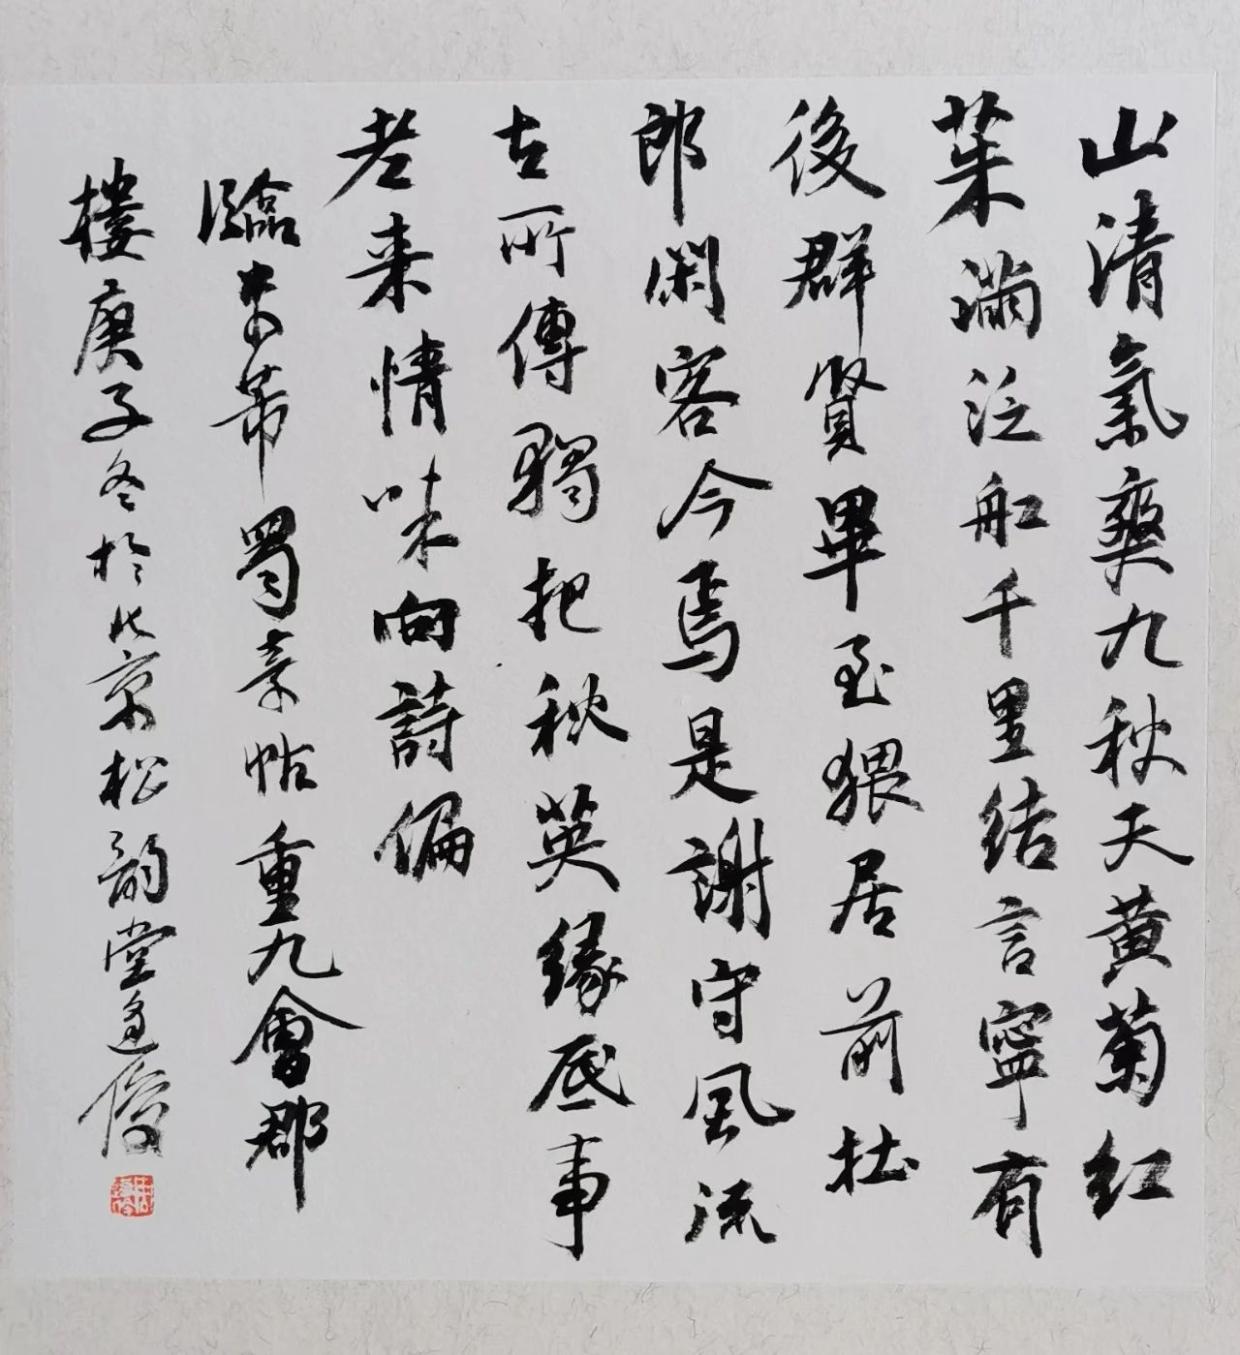 山清氣爽九秋天黄菊红
茱滿泛船千里结言寧有
後群賢畢至猥居前杜
郎閑客今焉是謝守風流
古所傳獨把秋英缘底事
老来情味向詩偏
臨米芾蜀素帖重九會郡
樓庚子冬於北京松韵堂